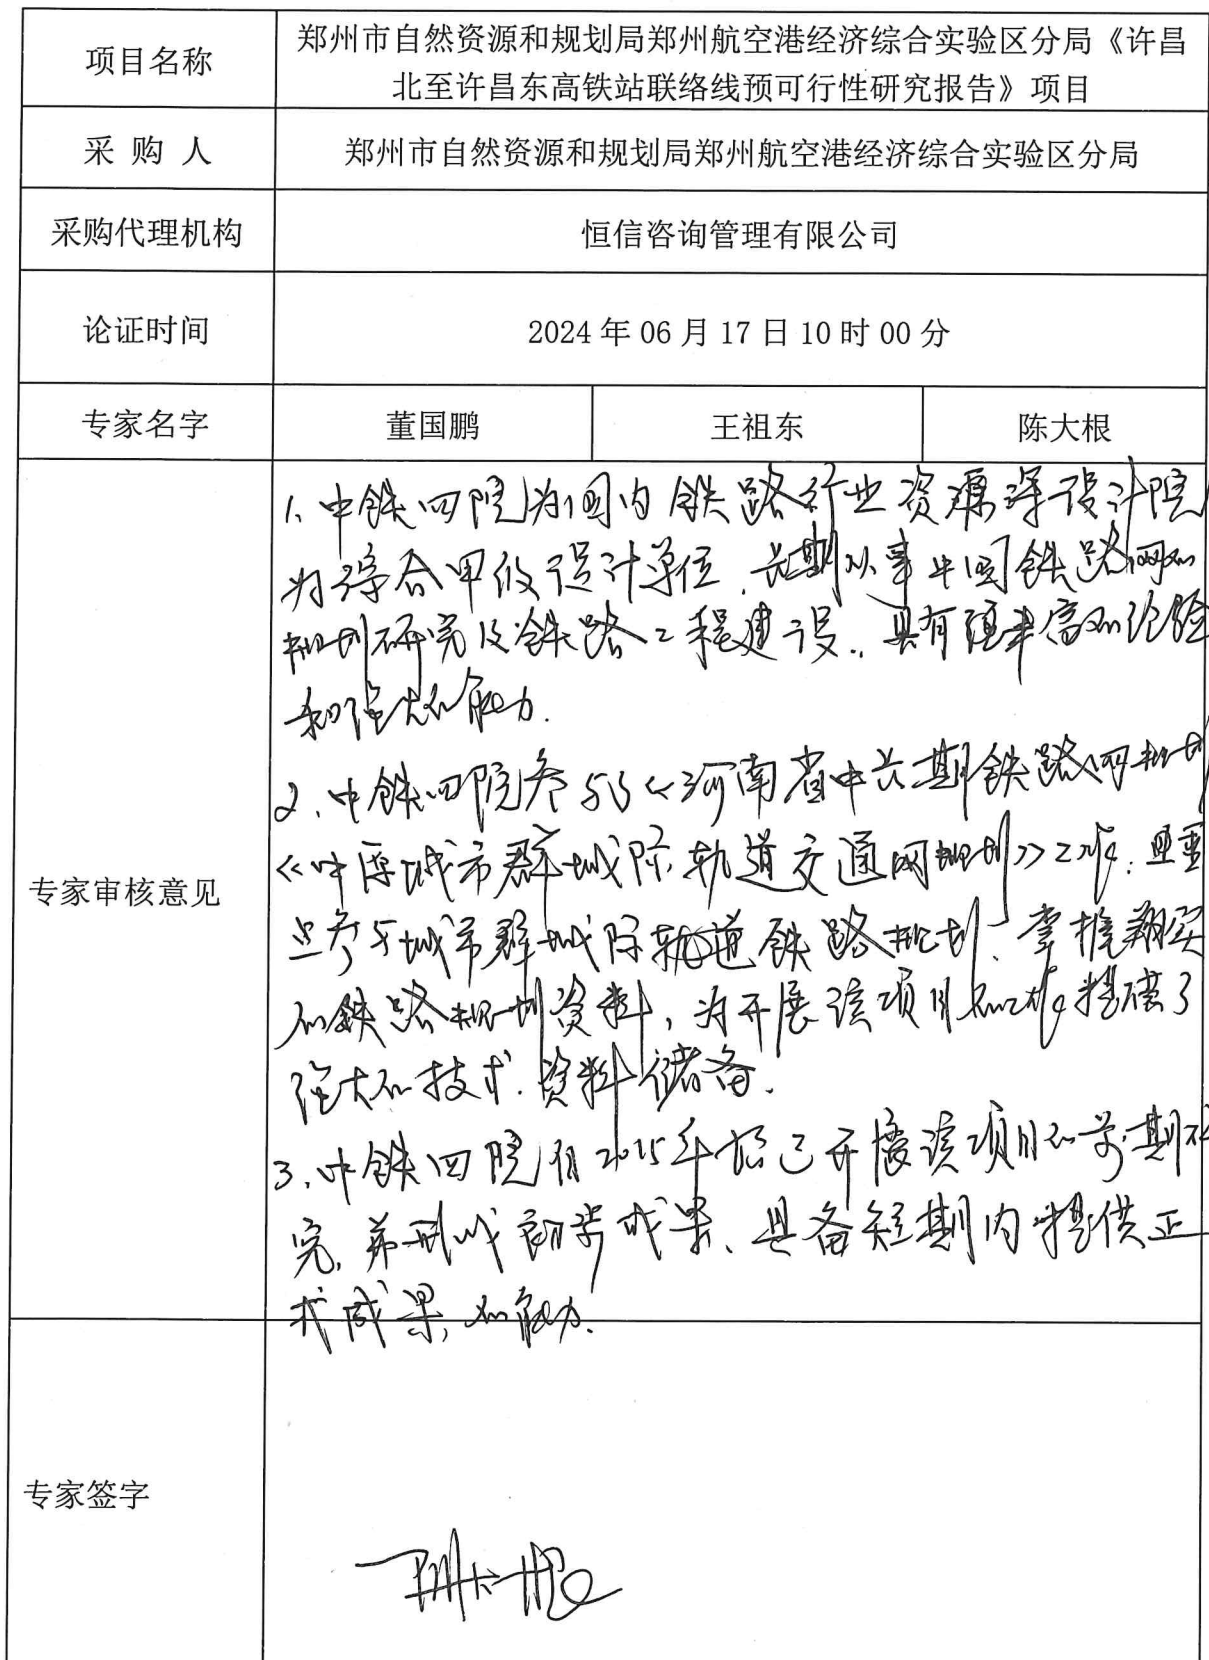 项目名称
郑州市自然资源和规划局郑州航空港经济综合实验区分局《许昌
北至许昌东高铁站联络线预可行性研究报告》项目
采 购 人
郑州市自然资源和规划局郑州航空港经济综合实验区分局
采购代理机构
恒信咨询管理有限公司
论证时间
2024 年 06 月 17 日 10 时 00 分
专家名字
董国鹏
王祖东
陈大根
专家审核意见
1、中铁四院为国内铁路行业资源深设计院
为综合甲级设计单位,长期从事中国铁路网的
规划研究及铁路工程建设,具有丰富的经验
和强大的能力.
2、中铁四院参与《河南省中长期铁路网规划
《中原城市群城际轨道交通网规划》工作.且重
点参与城市群城际轨道铁路规划、掌握翔实
的铁路规划资料,为开展该项目的工作提供了
强大的技术.资料储备.
3、中铁四院自2015年始已开展该项目的前期研
究,并形成初步成果、具备短期内提供正
式成果的能力.
专家签字